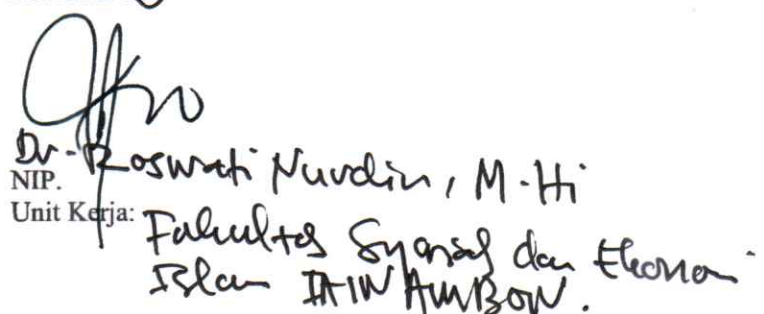 Dr. Roswati Nurdin, M.Hi
NIP.
Unit Kerja: Fakultas Syariah dan Ekonomi
Islam IAIN AMBON.